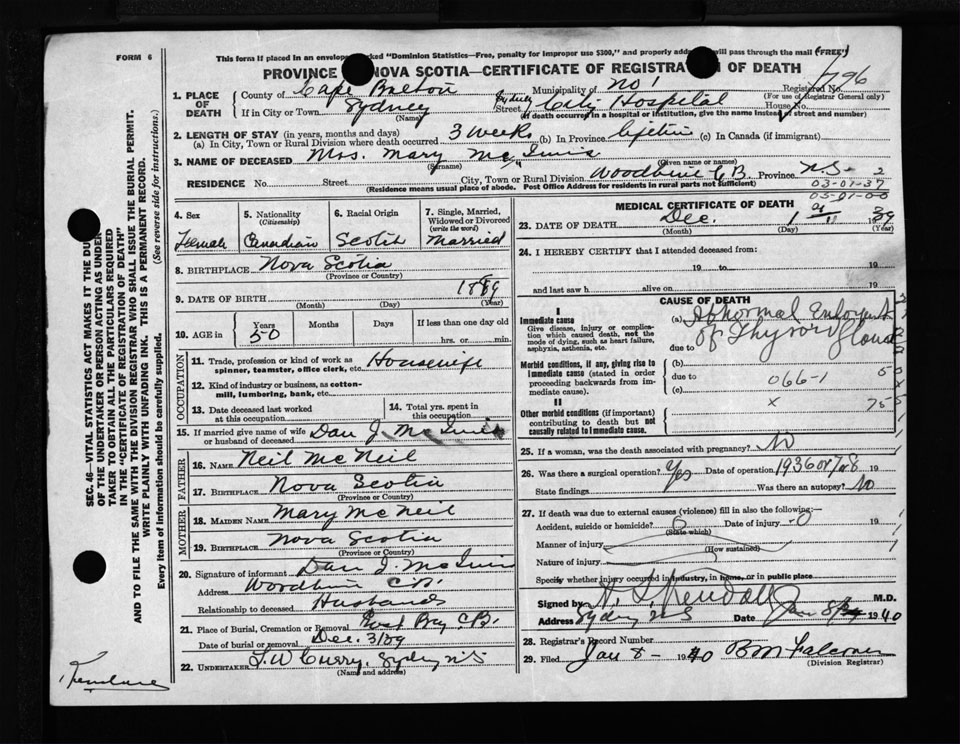 FORM 6
This form if placed in an envelope marked "Dominion Statistics—Free, penalty for improper use $300," and properly addressed will pass through the mail (FREE)
PROVINCE OF NOVA SCOTIA—CERTIFICATE OF REGISTRATION OF DEATH
1796
1. PLACE OF DEATH
County of Cape Breton Municipality of No 1 Registered No.
(For use of Registrar General only)
If in City or Town Sydney Street Sydney City Hospital House No.
(Name) (If death occurred in a hospital or institution, give the name instead of street and number)
2. LENGTH OF STAY (in years, months and days)
(a) In City, Town or Rural Division where death occurred 3 weeks (b) In Province lifetime (c) In Canada (if immigrant)
3. NAME OF DECEASED Mrs. Mary McInnis
(Surname) (Given name or names)
RESIDENCE No. Street City, Town or Rural Division Woodbine C B. Province N.S- 2
(Residence means usual place of abode. Post Office Address for residents in rural parts not sufficient)
03-01-37
05-01-00
4. Sex
Female
5. Nationality
(Citizenship)
Canadian
6. Racial Origin
Scotch
7. Single, Married, Widowed or Divorced
(write the word)
Married
8. BIRTHPLACE Nova Scotia
(Province or Country)
9. DATE OF BIRTH 1889
(Month) (Day) (Year)
10. AGE in
Years Months Days If less than one day old
50 hrs. or min.
OCCUPATION
11. Trade, profession or kind of work as spinner, teamster, office clerk, etc. Housewife
12. Kind of industry or business, as cotton-mill, lumbering, bank, etc.
13. Date deceased last worked at this occupation
14. Total yrs. spent in this occupation
15. If married give name of wife or husband of deceased Dan J McInnis
FATHER
16. NAME Neil McNeil
17. BIRTHPLACE Nova Scotia
(Province or Country)
MOTHER
18. MAIDEN NAME Mary McNeil
19. BIRTHPLACE Nova Scotia
(Province or Country)
20. Signature of informant Dan J McInnis
Address Woodbine C.B.
Relationship to deceased Husband
21. Place of Burial, Cremation or Removal East Bay C.B.
Date of burial or removal Dec. 3/39
22. UNDERTAKER T. W Curry, Sydney N.S
(Name and address)
MEDICAL CERTIFICATE OF DEATH
23. DATE OF DEATH Dec. 1 1939
(Month) (Day) (Year)
24. I HEREBY CERTIFY that I attended deceased from:
19 to 19
and last saw h alive on 19
CAUSE OF DEATH
I
Immediate cause
Give disease, injury or complication which caused death, not the mode of dying, such as heart failure, asphyxia, asthenia, etc.
(a) Abnormal Enlargement of Thyroid Gland
due to
Morbid conditions, if any, giving rise to immediate cause (stated in order proceeding backwards from immediate cause).
(b)
due to 066-1
(c)
II
Other morbid conditions (if important) contributing to death but not causally related to immediate cause.
x
25. If a woman, was the death associated with pregnancy? No
26. Was there a surgical operation? Yes Date of operation 1936 or 7 or 8 19
State findings Was there an autopsy? No
27. If death was due to external causes (violence) fill in also the following:—
Accident, suicide or homicide? 0 Date of injury 0 19
(State which)
Manner of injury
(How sustained)
Nature of injury
Specify whether injury occurred in industry, in home, or in public place
Signed by M.D.
Address Sydney N S Date Jan 8/ 1940
28. Registrar's Record Number
29. Filed Jan 8- 1940 B M Falconer
(Division Registrar)
SEC. 46—VITAL STATISTICS ACT MAKES IT THE DUTY
OF THE UNDERTAKER OR PERSON ACTING AS UNDER-
TAKER TO OBTAIN ALL THE PARTICULARS REQUIRED
IN THE "CERTIFICATE OF REGISTRATION OF DEATH"
AND TO FILE THE SAME WITH THE DIVISION REGISTRAR WHO SHALL ISSUE THE BURIAL PERMIT.
WRITE PLAINLY WITH UNFADING INK. THIS IS A PERMANENT RECORD.
Every item of information should be carefully supplied. (See reverse side for instructions.)